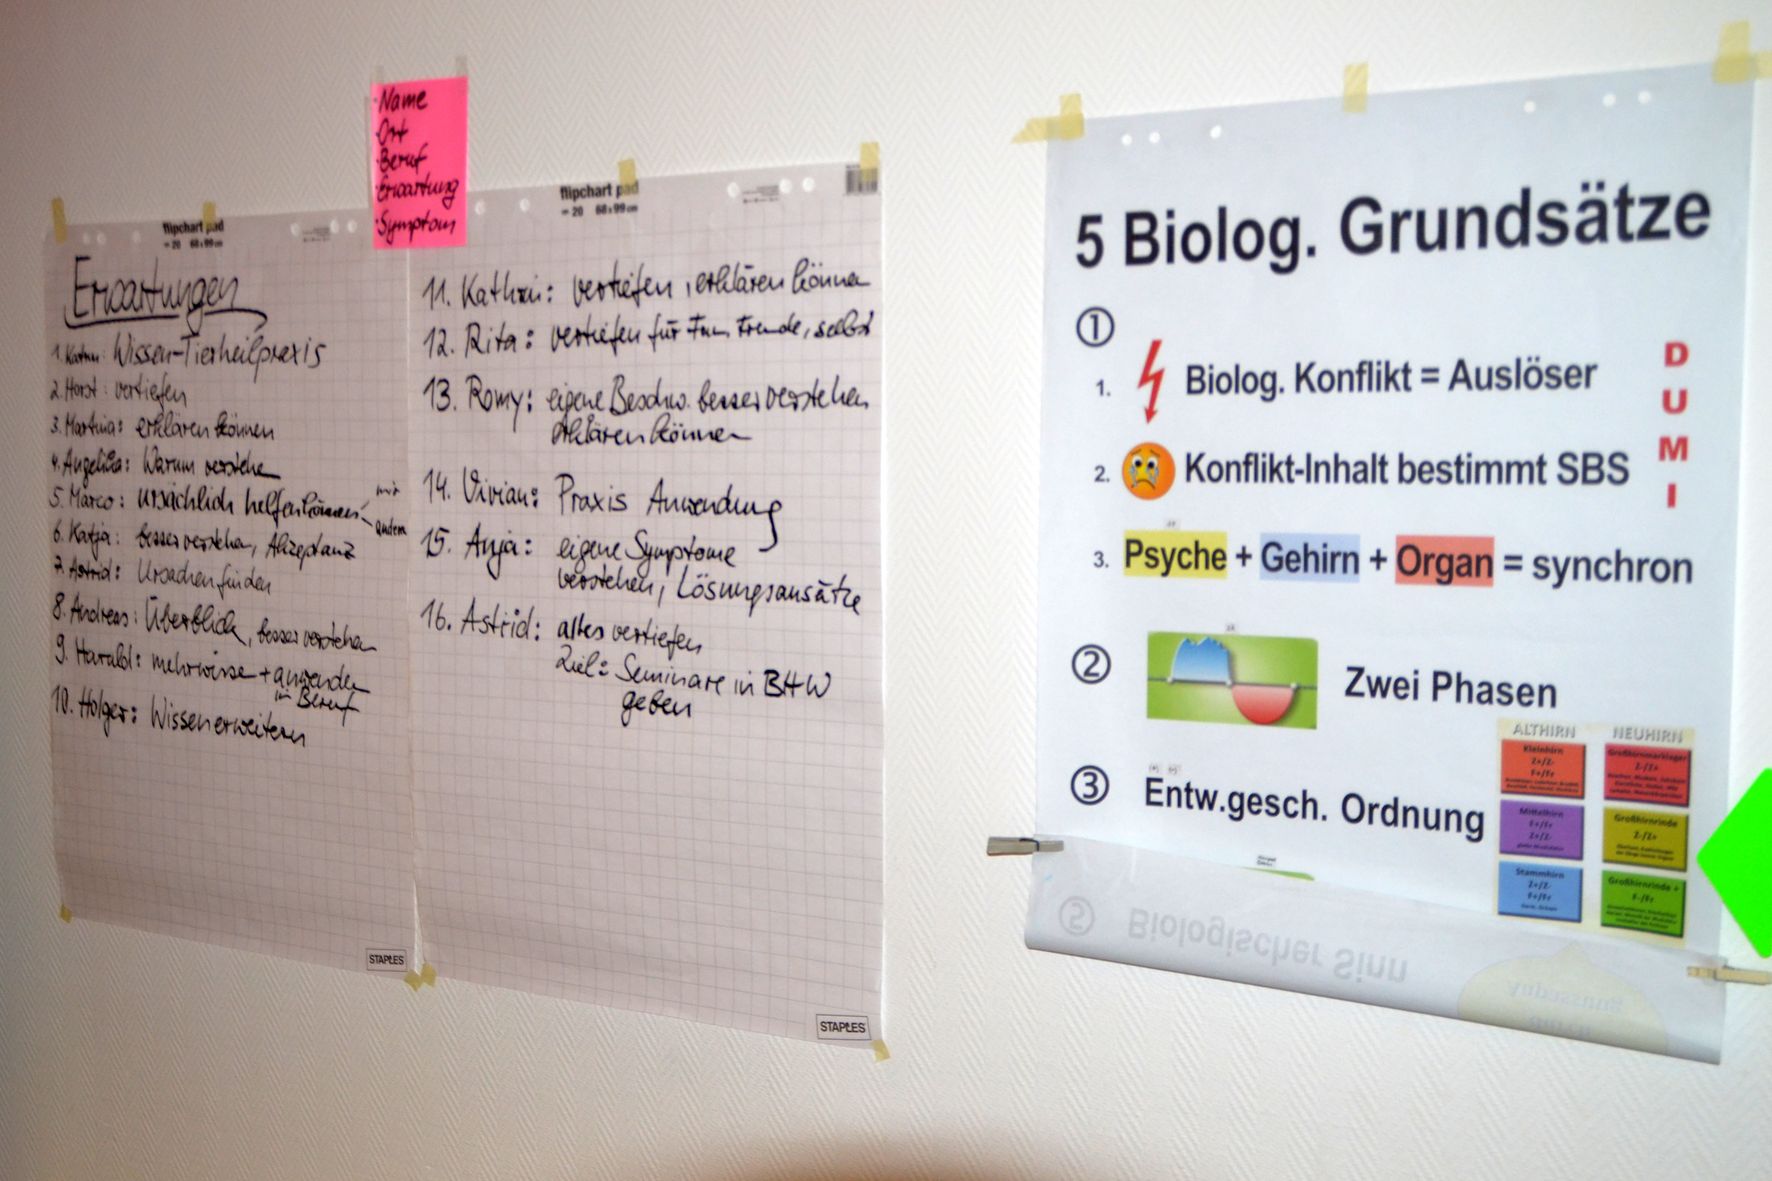 ·Name
·Ort
·Beruf
·Erwartung
·Symptom
flipchart pad
20 68x99cm
Erwartungen
1. Katrin: Wissen-Tierheilpraxis
2. Horst: vertiefen
3. Martina: erklären können
4. Angelika: Warum verstehe
5. Marco: ursächlich helfen können
mir
andern
6. Katja: besser verstehen, Akzeptanz
7. Astrid: Ursachen finden
8. Andreas: Überblick, besser verstehen
9. Harald: mehr wisse + anwenden
in Beruf
10. Holger: Wissen erweitern
STAPLES
flipchart pad
20 68x99cm
11. Kathrin: vertiefen, erklären können
12. Rita: vertiefen für Fam. Freunde, selbst
13. Romy: eigene Beschw. besser verstehen
erklären können
14. Vivian: Praxis Anwendung
15. Anja: eigene Symptome
verstehen, Lösungsansätze
16. Astrid: altes vertiefen
Ziel: Seminare in BHW
geben
STAPLES
5 Biolog. Grundsätze
①
1. Biolog. Konflikt = Auslöser
2. Konflikt-Inhalt bestimmt SBS
3. Psyche + Gehirn + Organ = synchron
D
U
M
I
② Zwei Phasen
③ Entw.gesch. Ordnung
ALTHIRN NEUHIRN
Kleinhirn
Z+/Z-
F+/Fr
Großhirnmarklager
Z-/Z+
Mittelhirn
F+/Fr
Z+/Z-
Großhirnrinde
Z-/Z+
Stammhirn
Z+/Z-
F+/Fr
Großhirnrinde +
F-/Fr
⑤ Biologischer Sinn
Anpassung